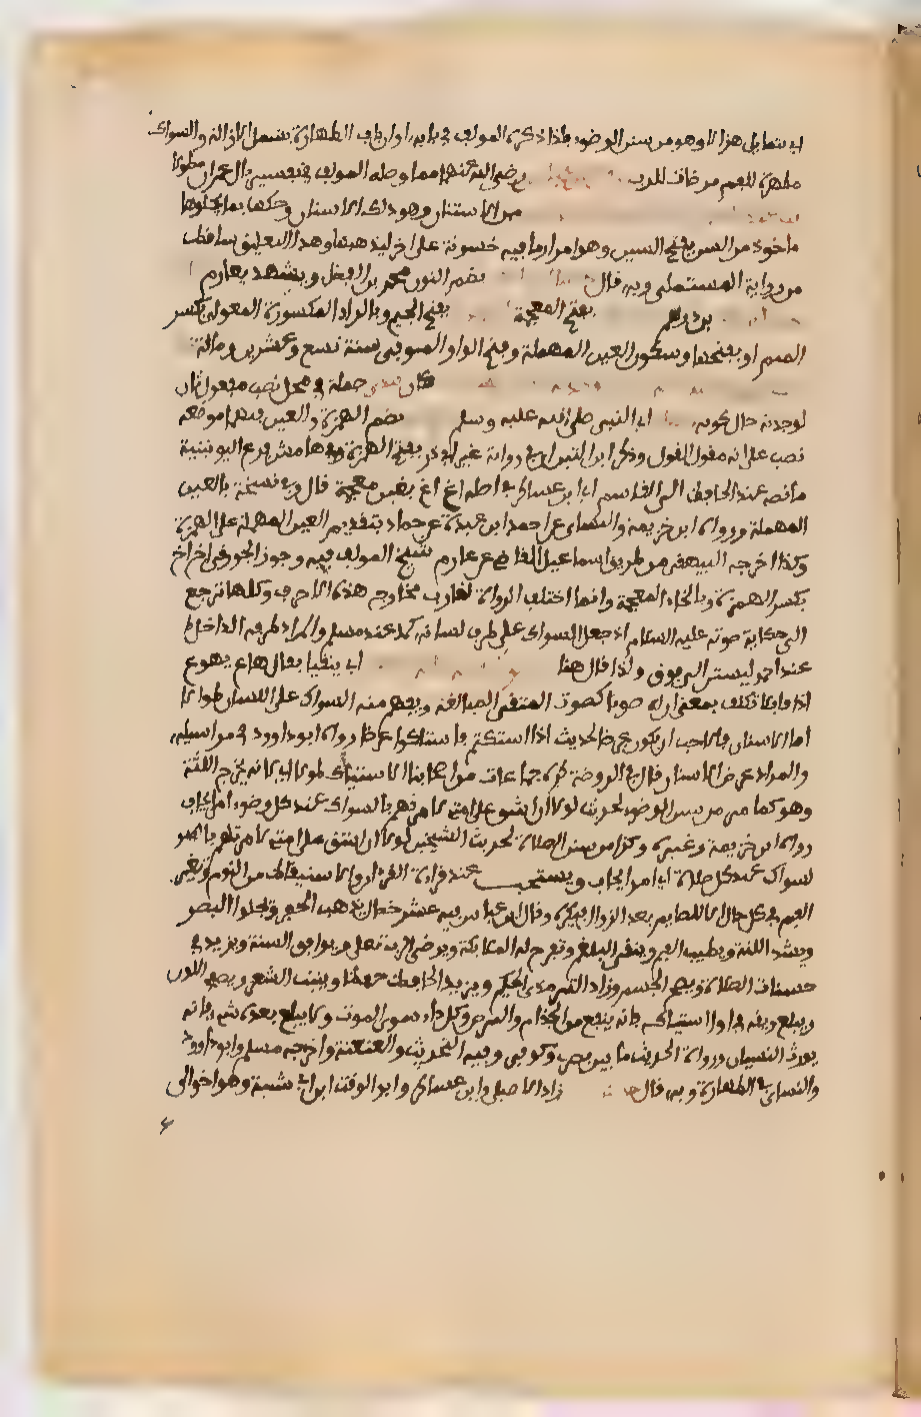 اي بتمايل هذا الا وهو من سنن الوضوء فلذا ذكره المولف في بابه او ان باب الطهارة يشمل الازالة والسواك
مطهرة للفم مرضات للرب رضي الله عنهما مما وصله المولف في تفسير ال عمران مطولا
من الاستنان وهو دلك الاسنان وحكها بما يجلوها
ماخوذ من السن بفتح السين وهو امرار ما فيه خشونة على اخر ليذهبها وهذا التعليق ساقط
من رواية المستملي وبه قال بضم النون محمد بن الفضل ويشهد بعارم
بن درهم بفتح المعجمة بفتح الجيم وبالراء المكسورة المعولي بكسر
الميم او بفتحها وسكون العين المهملة وفتح الواو المتوفى سنة تسع وعشرين ومائة
جملة في محل نصب مفعول ثان
لوجدته حال كونه اي النبي صلى الله عليه وسلم بضم الهمزة والعين موضعه
نصب على انه مقول القول وذكر ابن التين ان في رواية غير ابي ذر بفتح الهمزة وفي هامش فرع اليونينية
ما نصه عند الحافظ ابي القاسم اي ابن عساكر في اصله اغ اغ بغين معجمة قال وفي نسخة بالعين
المهملة ورواه ابن خزيمة والنساي عن احمد ابن عبدة عن حماد بتقديم العين المهملة على الهمزة
وكذا اخرجه البيهقي من طريق اسماعيل القاضي عن عارم شيخ المولف فيه وجوز الجوزقي اخ اخ
بكسر الهمزة وبالخاء المعجمة وانما اختلف الرواة لتقارب مخارج هذه الاحرف وكلها ترجع
الى حكاية صوته عليه السلام اذ جعل السواك على طرف لسانه كما عند مسلم والمراد طرفه الداخل
عند احمد ليستن الى فوق ولذا قال هنا اي يتقيا يقال هاع يهوع
اذا قاء بلا تكلف بمعنى ان له صوتا كصوت المتقي المبالغة ويفهم منه السواك على اللسان طولا
اما الاسنان فالاحب ان يكون عرضا لحديث اذا استكتم فاستاكوا عرضا رواه ابو داوود في مراسيله
والمراد عرض الاسنان قال في الروضة كره جماعات من اصحابنا الاستياك طولا اي لانه يجرح اللثة
وهو كما مر من سنن الوضوء لحديث لولا ان اشق على امتي لامرتهم بالسواك عند كل وضوء امر ايجاب
رواه ابن خزيمة وغيره وكذا من سنن الصلاة لحديث الشيخين لولا ان اشق على امتي لامرتهم با
لسواك عند كل صلاة اي امر ايجاب ويستحب عند قراءة القرءان والاستيقاظ من النوم وتغير
الفم في كل حال الا للصايم بعد الزوال فيكره وقال ابن عباس فيه عشر خصال يذهب الحفر ويجلوا البصر
ويشد اللثة ويطيب الفم وينقي البلغم وتفرح له الملايكة ويرضي الرب تعلى ويوافق السنة ويزيد في
حسنات الصلاة ويصح الجسم وزاد الترمذي الحكيم ويزيد الحافظ حفظا وينبت الشعر ويصفي اللون
ويبلع ريقه في اول استياكه فانه ينفع من الجذام والبرص وكل داء سوى الموت ولا يبلع بعده شيا فانه
يورث النسيان ورواة الحديث ما بين بصري وكوفي وفيه التحديث والعنعنة واخرجه مسلم وابو داوود
والنساي في الطهارة وبه قال زاد الاصيلي وابن عساكر وابو الوقت ابن ابي شيبة وهو اخو ابي